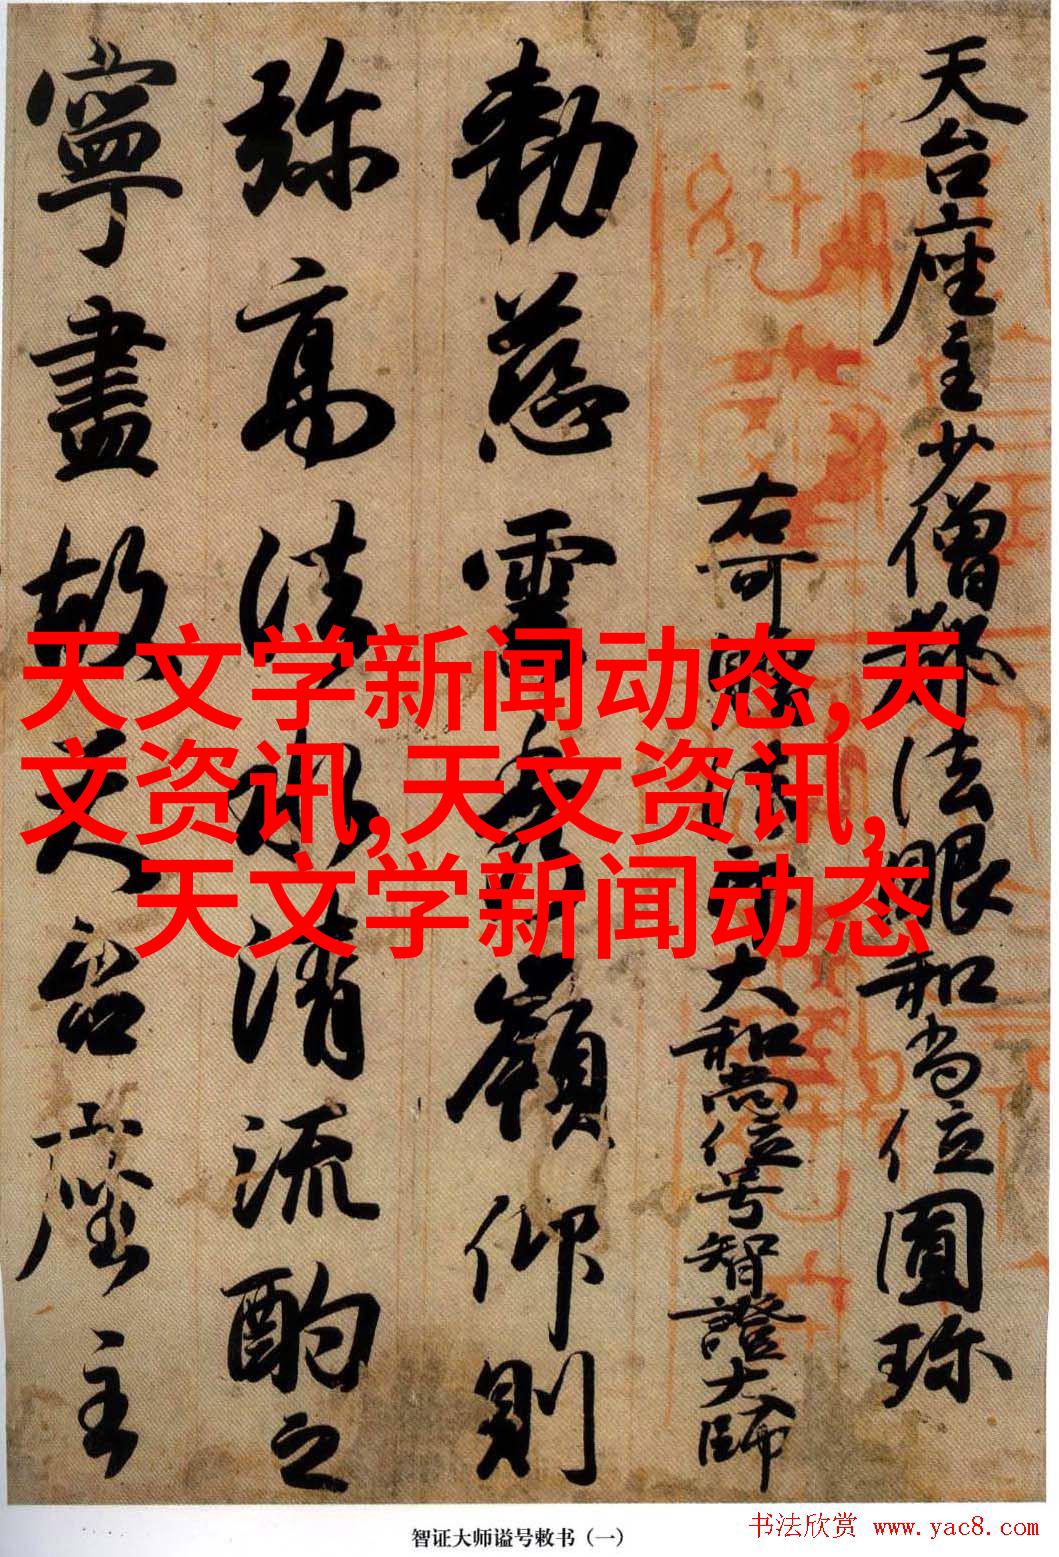 天台座主少僧都法眼和尚位圓珎
右可贈法印大和尚位号智證大師
勅慈雲秀嶺仰則
弥高法水清流酌之
寧盡故天台座主
天文学新闻动态,天
文资讯,天文资讯,
天文学新闻动态
智证大师谥号敕书（一）
书法欣赏 www.yac8.com